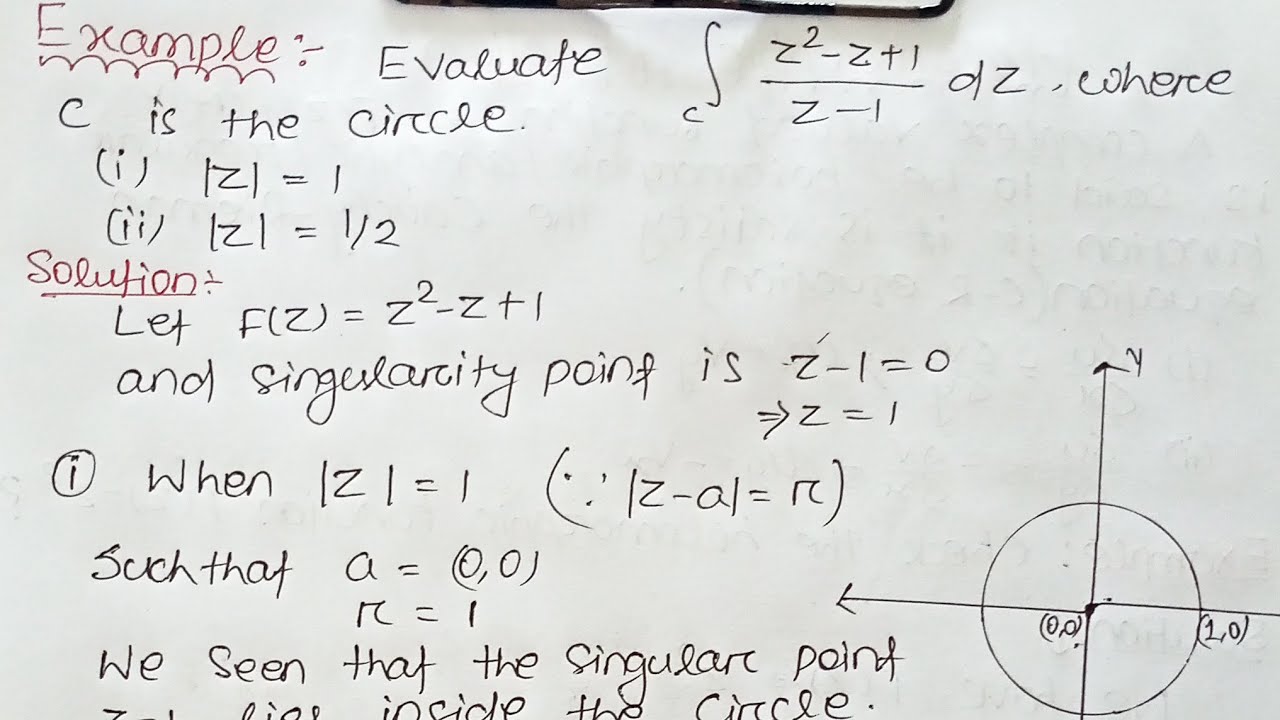 Example:- Evaluate ∫_C (z²-z+1)/(z-1) dz, where
C is the circle.
(i) |z| = 1
(ii) |z| = 1/2
Solution:-
Let F(z) = z²-z+1
and singularity point is z-1=0
⇒ z = 1
① When |z| = 1 (∵ |z-a| = r)
Such that a = (0,0)
r = 1
We seen that the singular point
z=1 lies inside the circle.
Y
(0,0)
(1,0)